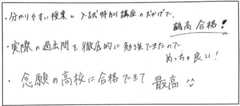 ・分かりやすい授業と入試特別講座のおかげで、
最高合格！
・実際の過去問を徹底的に勉強できたので
めっちゃ良い！
・念願の高校に合格できて 最高